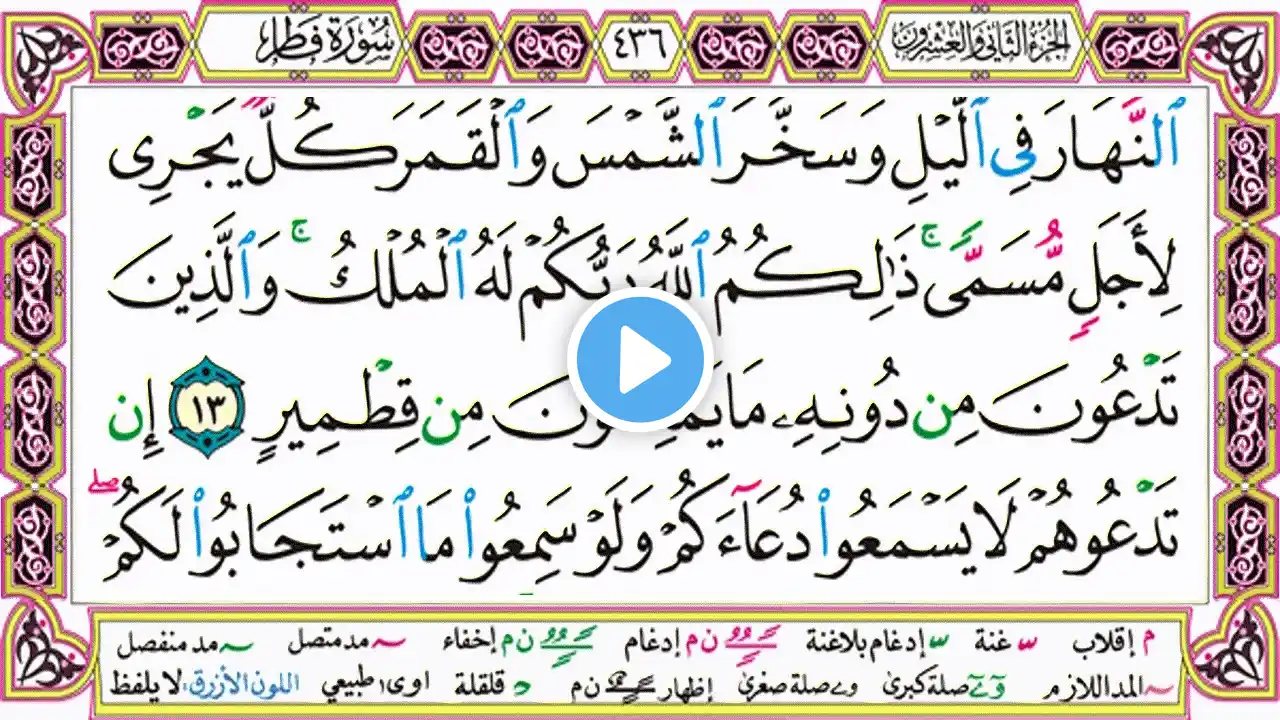 سُورَةُ فَطِرٍ
٤٣٦
الجُزْءُ الثَّانِي وَالعِشْرُونَ
ٱلنَّهَارَ فِى ٱلَّيْلِ وَسَخَّرَ ٱلشَّمْسَ وَٱلْقَمَرَ كُلٌّ يَجْرِى
لِأَجَلٍ مُّسَمًّى ۚ ذَٰلِكُمُ ٱللَّهُ رَبُّكُمْ لَهُ ٱلْمُلْكُ ۚ وَٱلَّذِينَ
تَدْعُونَ مِن دُونِهِۦ مَا مِن قِطْمِيرٍ ١٣ إِن
تَدْعُوهُمْ لَا يَسْمَعُوا۟ دُعَآءَكُمْ وَلَوْ سَمِعُوا۟ مَا ٱسْتَجَابُوا۟ لَكُمْ ۖ
م إقلاب غنة إدغام بلاغنة ن م إدغام ن م إخفاء مد متصل مد منفصل
المد اللازم صلة كبرى صلة صغرى إظهار ن م قلقلة اوى طبيعي اللون الأزرق: لا يلفظ